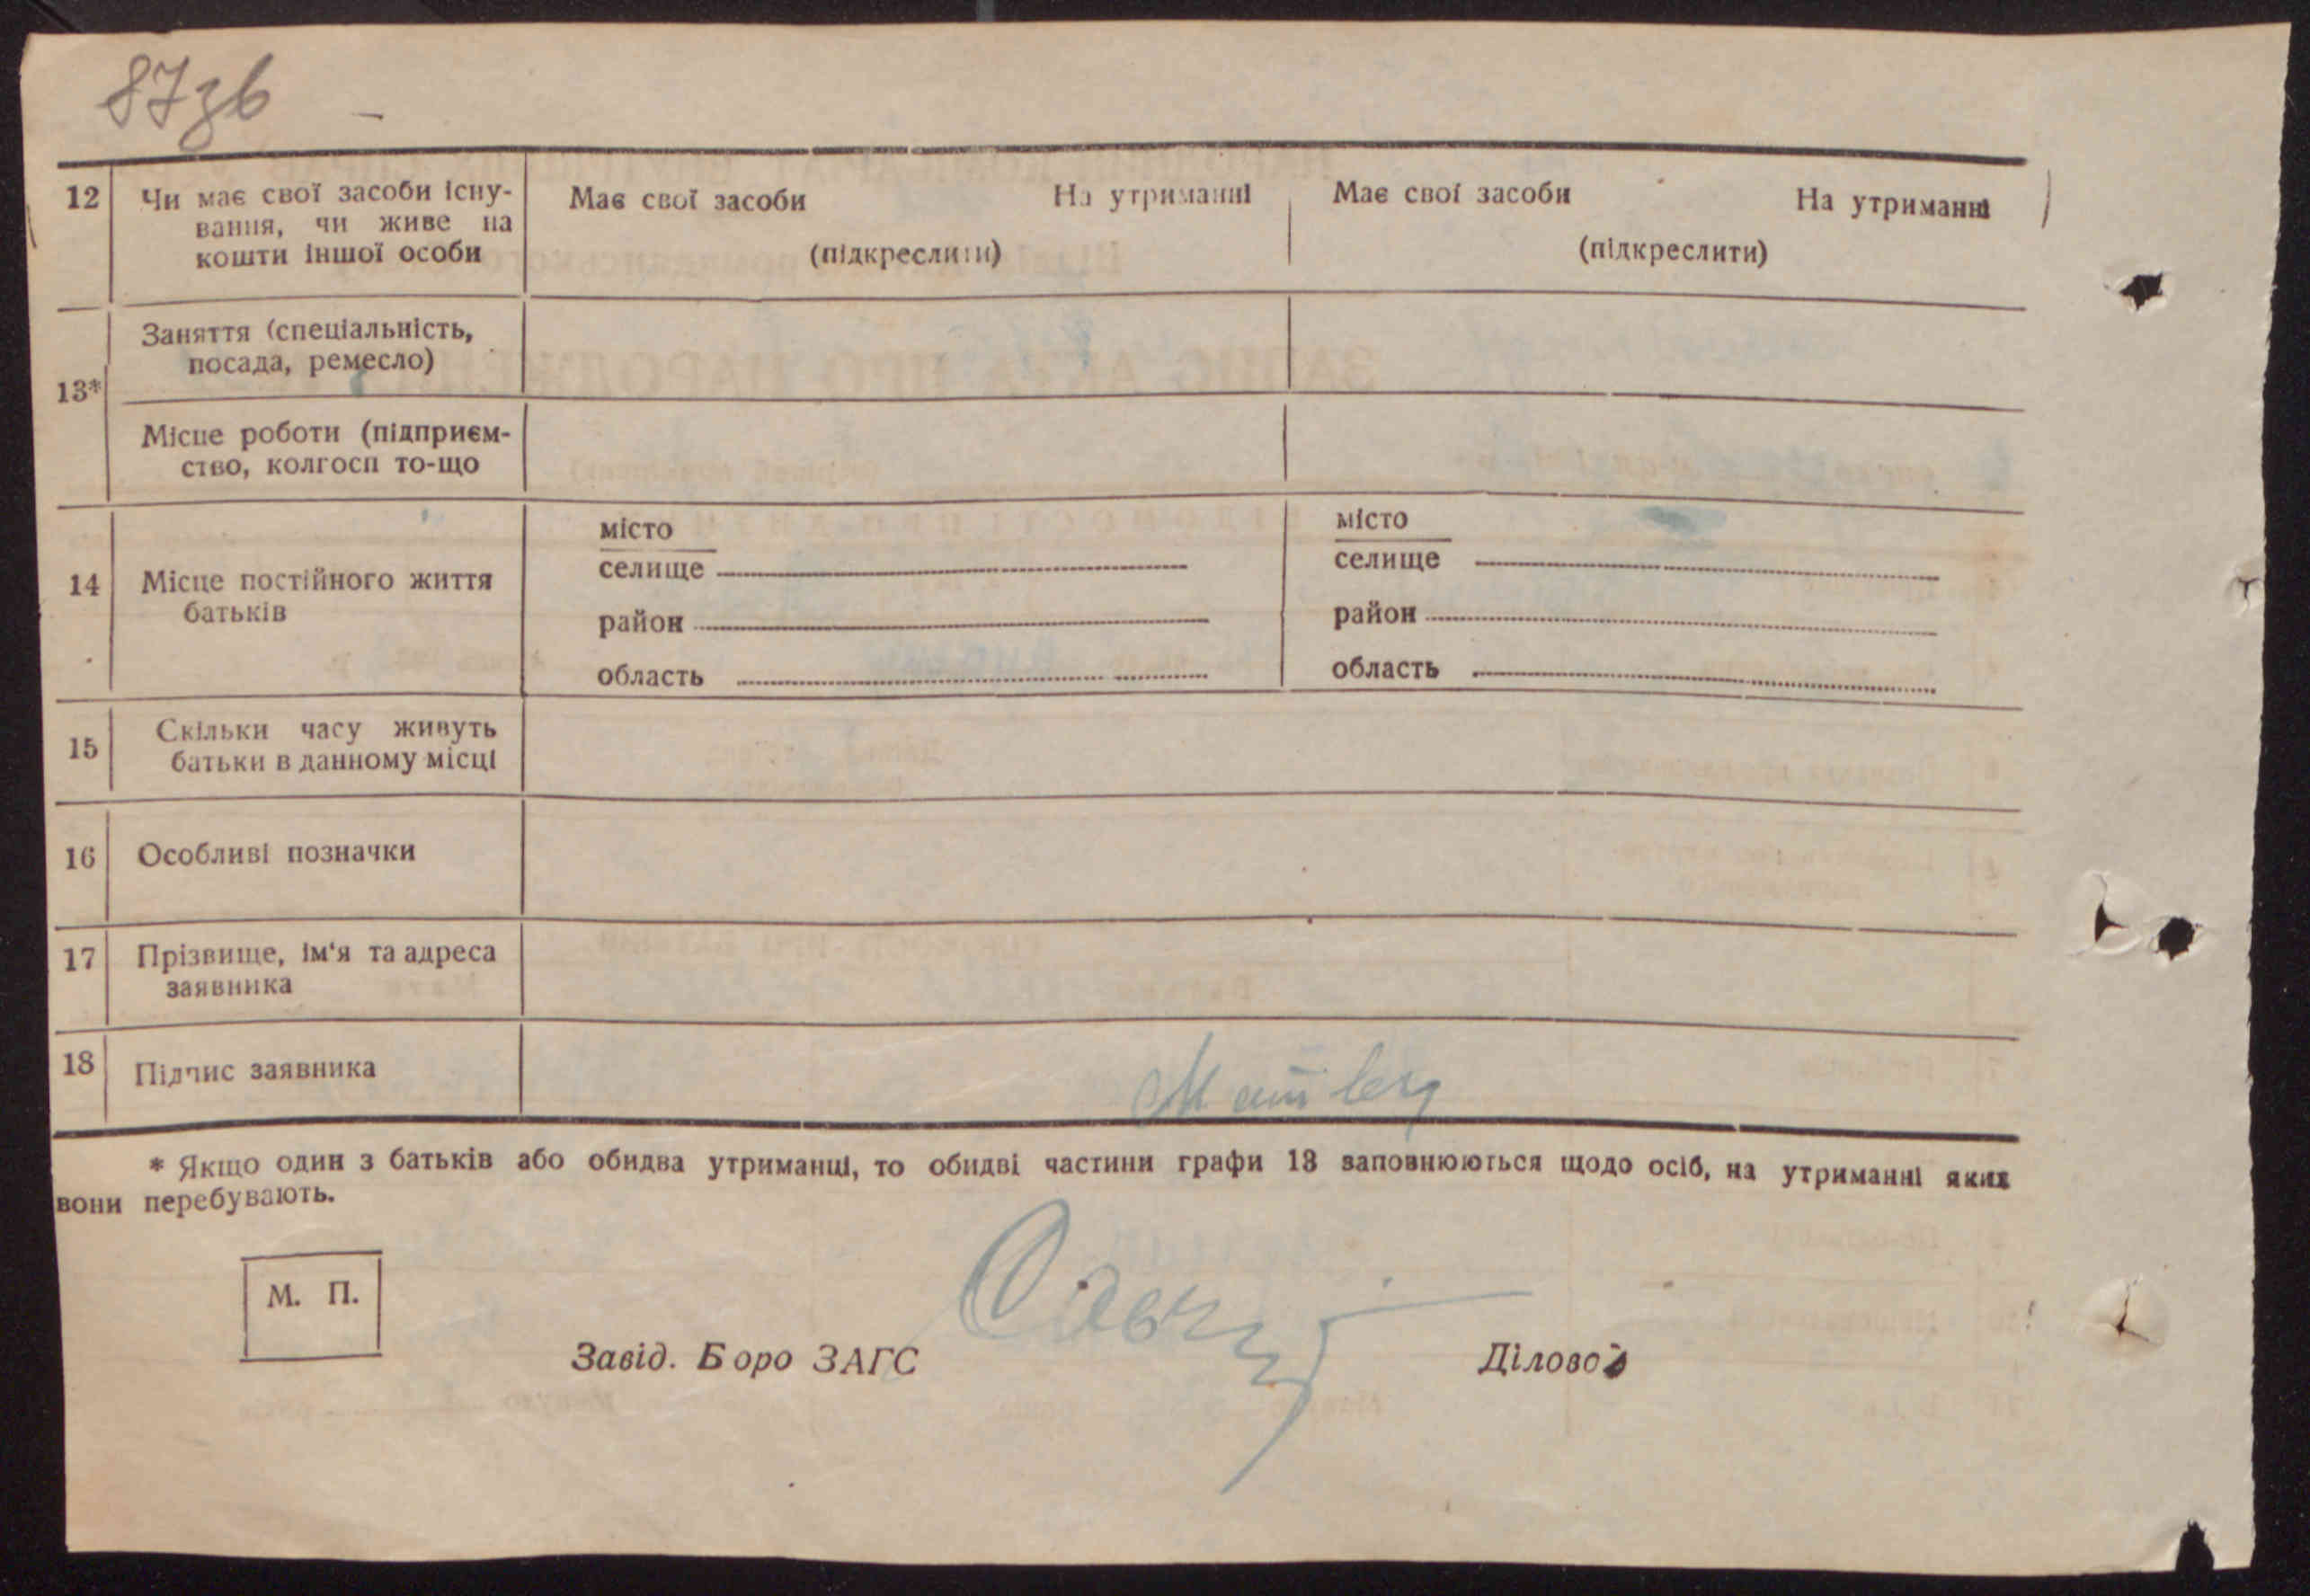 87зв
12 Чи має свої засоби існу- Має свої засоби На утриманні Має свої засоби На утриманні
вання, чи живе на
кошти іншої особи (підкреслити) (підкреслити)
Заняття (спеціальність,
посада, ремесло)
13*
Місце роботи (підприєм-
ство, колгосп то-що
місто місто
селище селище
14 Місце постійного життя
батьків район район
область область
15 Скільки часу живуть
батьки в данному місці
16 Особливі позначки
17 Прізвище, ім'я та адреса
заявника
18 Підпис заявника
* Якщо один з батьків або обидва утриманці, то обидві частини графи 13 заповнюються щодо осіб, на утриманні яких
вони перебувають.
М. П.
Завід. Бюро ЗАГС Діловод